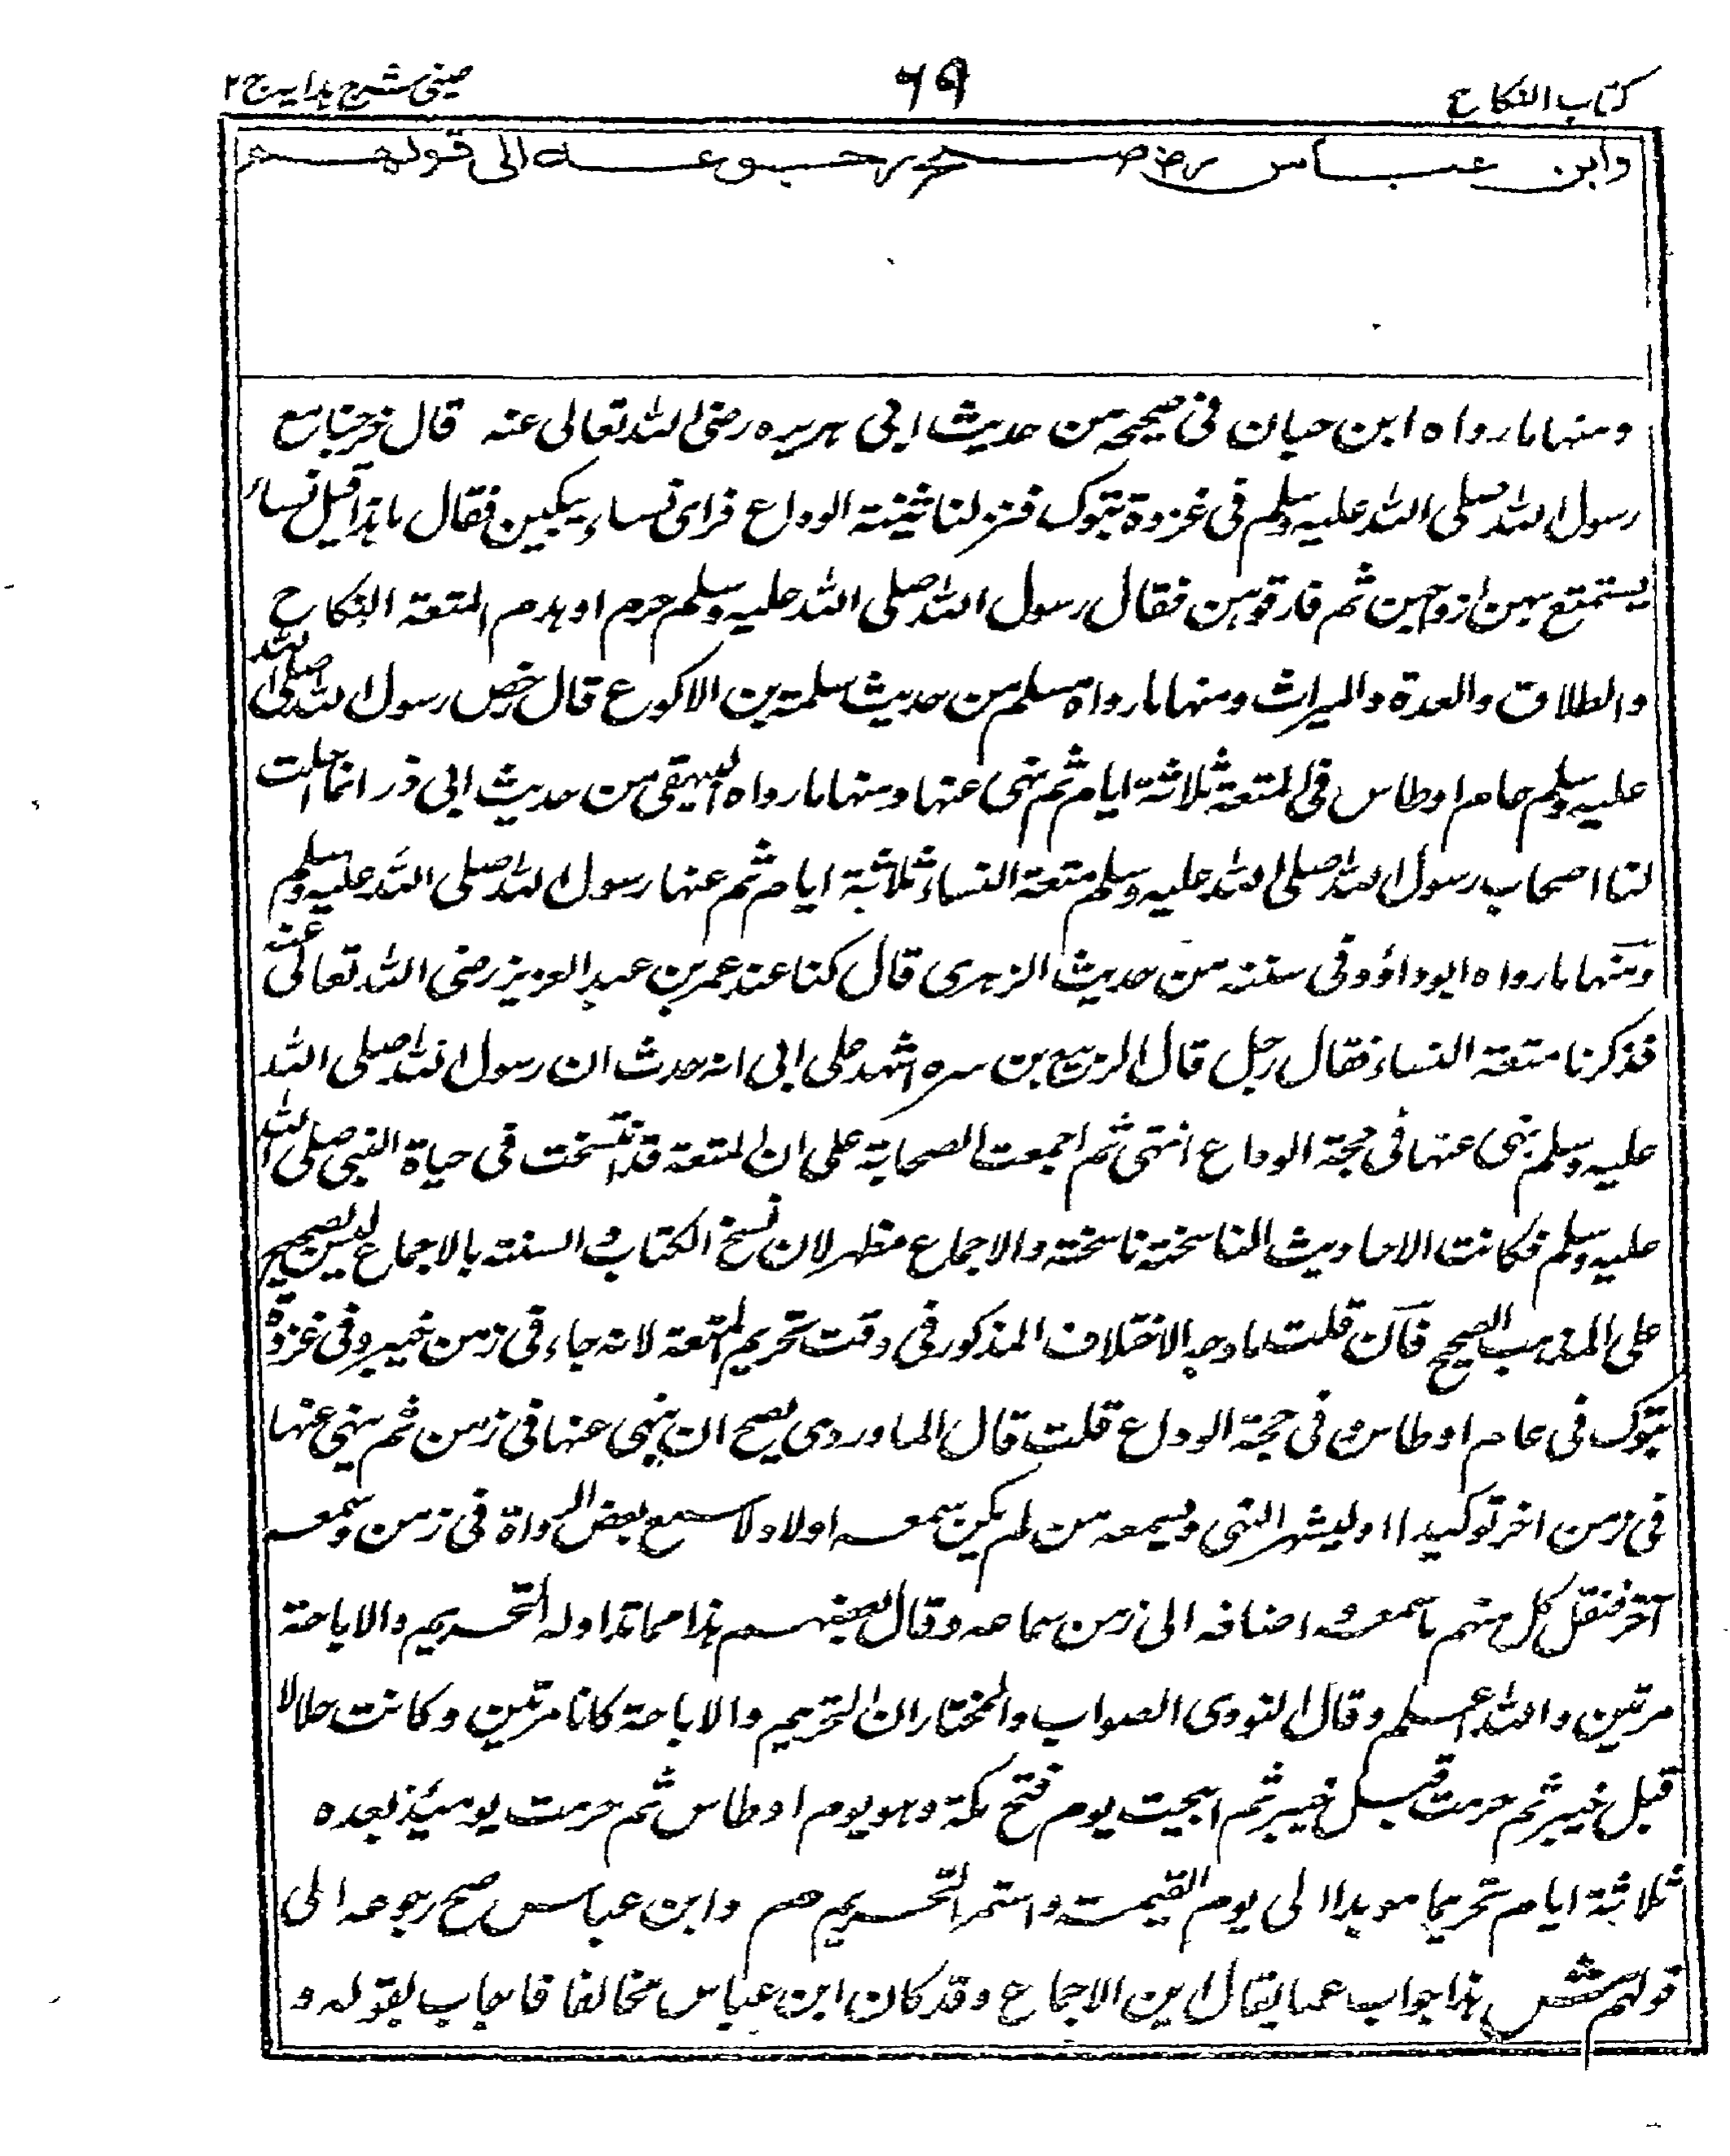 كتاب النكاح
٦٩
عينى شرح هدايه ج ٢
وابن عباس رض صح رجوعه الى قولهم
ومنها ما رواه ابن حبان فى صحيحه من حديث ابى هريره رضى الله تعالى عنه قال خرجنا مع
رسول الله صلى الله عليه وسلم فى غزوة تبوك فنزلنا ثنية الوداع فراى نساء يبكين فقال ما هذا قيل نساء
يستمتع بهن ازواجهن ثم فارقوهن فقال رسول الله صلى الله عليه وسلم حرم او هدم المتعة النكاح
والطلاق والعدة والميراث ومنها ما رواه مسلم من حديث سلمة بن الاكوع قال رخص رسول الله صلى الله
عليه وسلم عام اوطاس فى المتعة ثلاثة ايام ثم نهى عنها ومنها ما رواه البيهقى من حديث ابى ذر انما احلت
لنا اصحاب رسول الله صلى الله عليه وسلم متعة النساء ثلاثة ايام ثم عنها رسول الله صلى الله عليه وسلم
ومنها ما رواه ابو داؤد فى سننه من حديث الزهرى قال كنا عند عمر بن عبد العزيز رضى الله تعالى عنه
فذكرنا متعة النساء فقال رجل قال الربيع بن سبره اشهد على ابى انه حدث ان رسول الله صلى الله
عليه وسلم نهى عنها فى حجة الوداع انتهى ثم اجمعت الصحابة على ان المتعة قد انتسخت فى حياة النبى صلى الله
عليه وسلم فكانت الاحاديث الناسخة ناسخة والاجماع مظهر لان نسخ الكتاب والسنة بالاجماع ليس بصحيح
على المذهب الصحيح فان قلت ما وجه الاختلاف المذكور فى وقت تحريم المتعة لانه جاء فى زمن خيبر وفى غزوة
تبوك فى عام اوطاس وفى حجة الوداع قلت قال الماوردى يصح ان ينهى عنها فى زمن ثم ينهى عنها
فى زمن اخر توكيدا او ليشهر النهى ويسمعه من لم يكن سمعه اولا ولا سمع بعض الرواة فى زمن وسمعه
آخر فنقل كل منهم ما سمعه واضافه الى زمن سماعه وقال بعضهم هذا مما تداوله التحريم والاباحة
مرتين والله اعلم وقال النووى الصواب والمختار ان التحريم والاباحة كانا مرتين وكانت حلالا
قبل خيبر ثم حرمت قبل خيبر ثم ابيحت يوم فتح مكة وهو يوم اوطاس ثم حرمت يومئذ بعده
ثلاثة ايام تحريما موبدا الى يوم القيمة واستمر التحريم هم وابن عباس صح رجوعه الى
قولهم ش هذا جواب عما يقال اين الاجماع وقد كان ابن عباس مخالفا فاجاب بقوله و